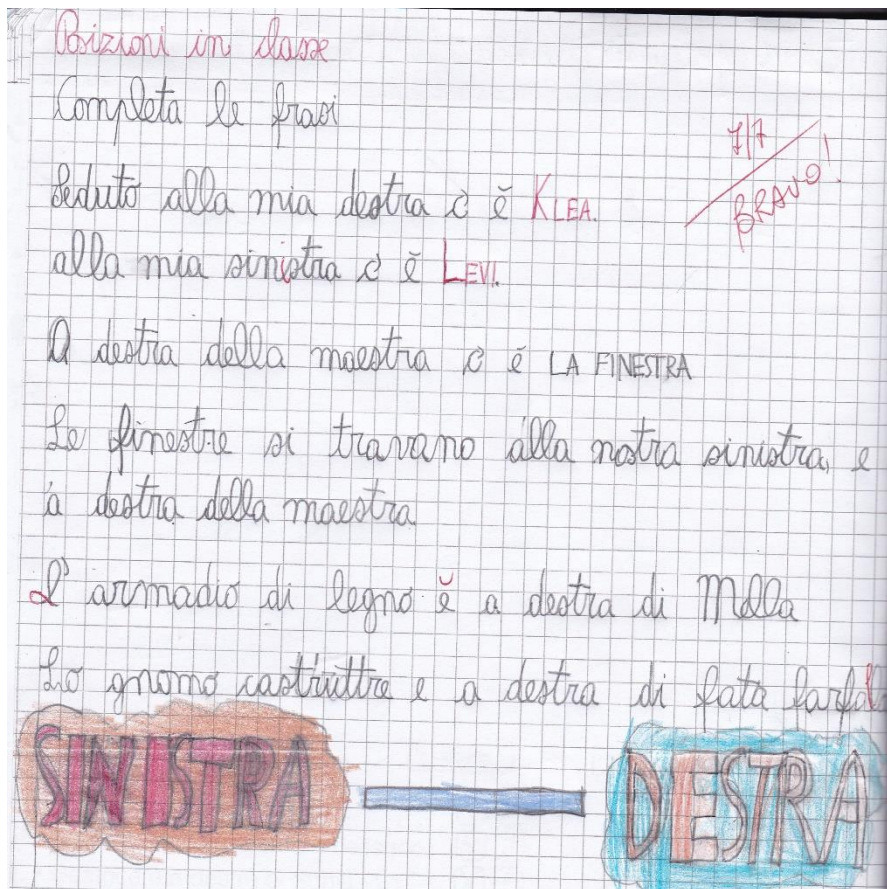 Posizioni in classe
Completa le frasi
7/7
BRAVO!
Seduto alla mia destra c è KLEA.
alla mia sinistra c è LEVI.
A destra della maestra c è LA FINESTRA
Le finestre si trovano alla nostra sinistra, e
a destra della maestra
L'armadio di legno è a destra di
Lo gnomo e a destra di fata farfal
SINISTRA DESTRA